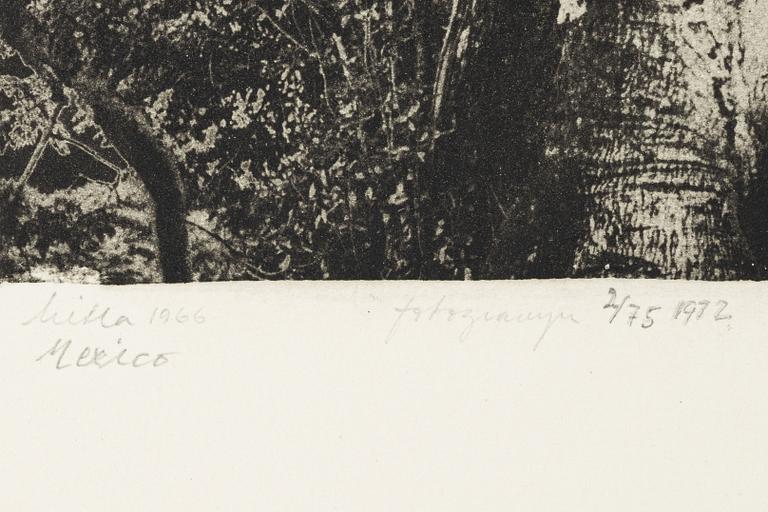 Mitla 1966 fotogravyr 2/75 1972
Mexico